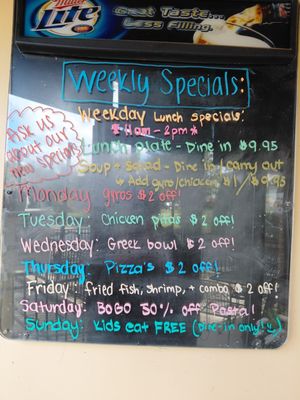 Miller
Lite
Great Taste...
Less Filling.
Weekly Specials:
Weekday Lunch Specials:
* 11am - 2pm *
Ask us
about our
new specials
Lunch Plate - Dine in $9.95
Soup + Salad - Dine in/carry out
+ Add gyro/chicken $1/$9.95
Monday: gyros $2 off!
Tuesday: Chicken pitas $2 off!
Wednesday: Greek bowl $2 off!
Thursday: Pizza's $2 off!
Friday: fried fish, shrimp, + combo $2 off!
Saturday: BOGO 50% off Pasta!
Sunday: Kids eat FREE (Dine-in only!)